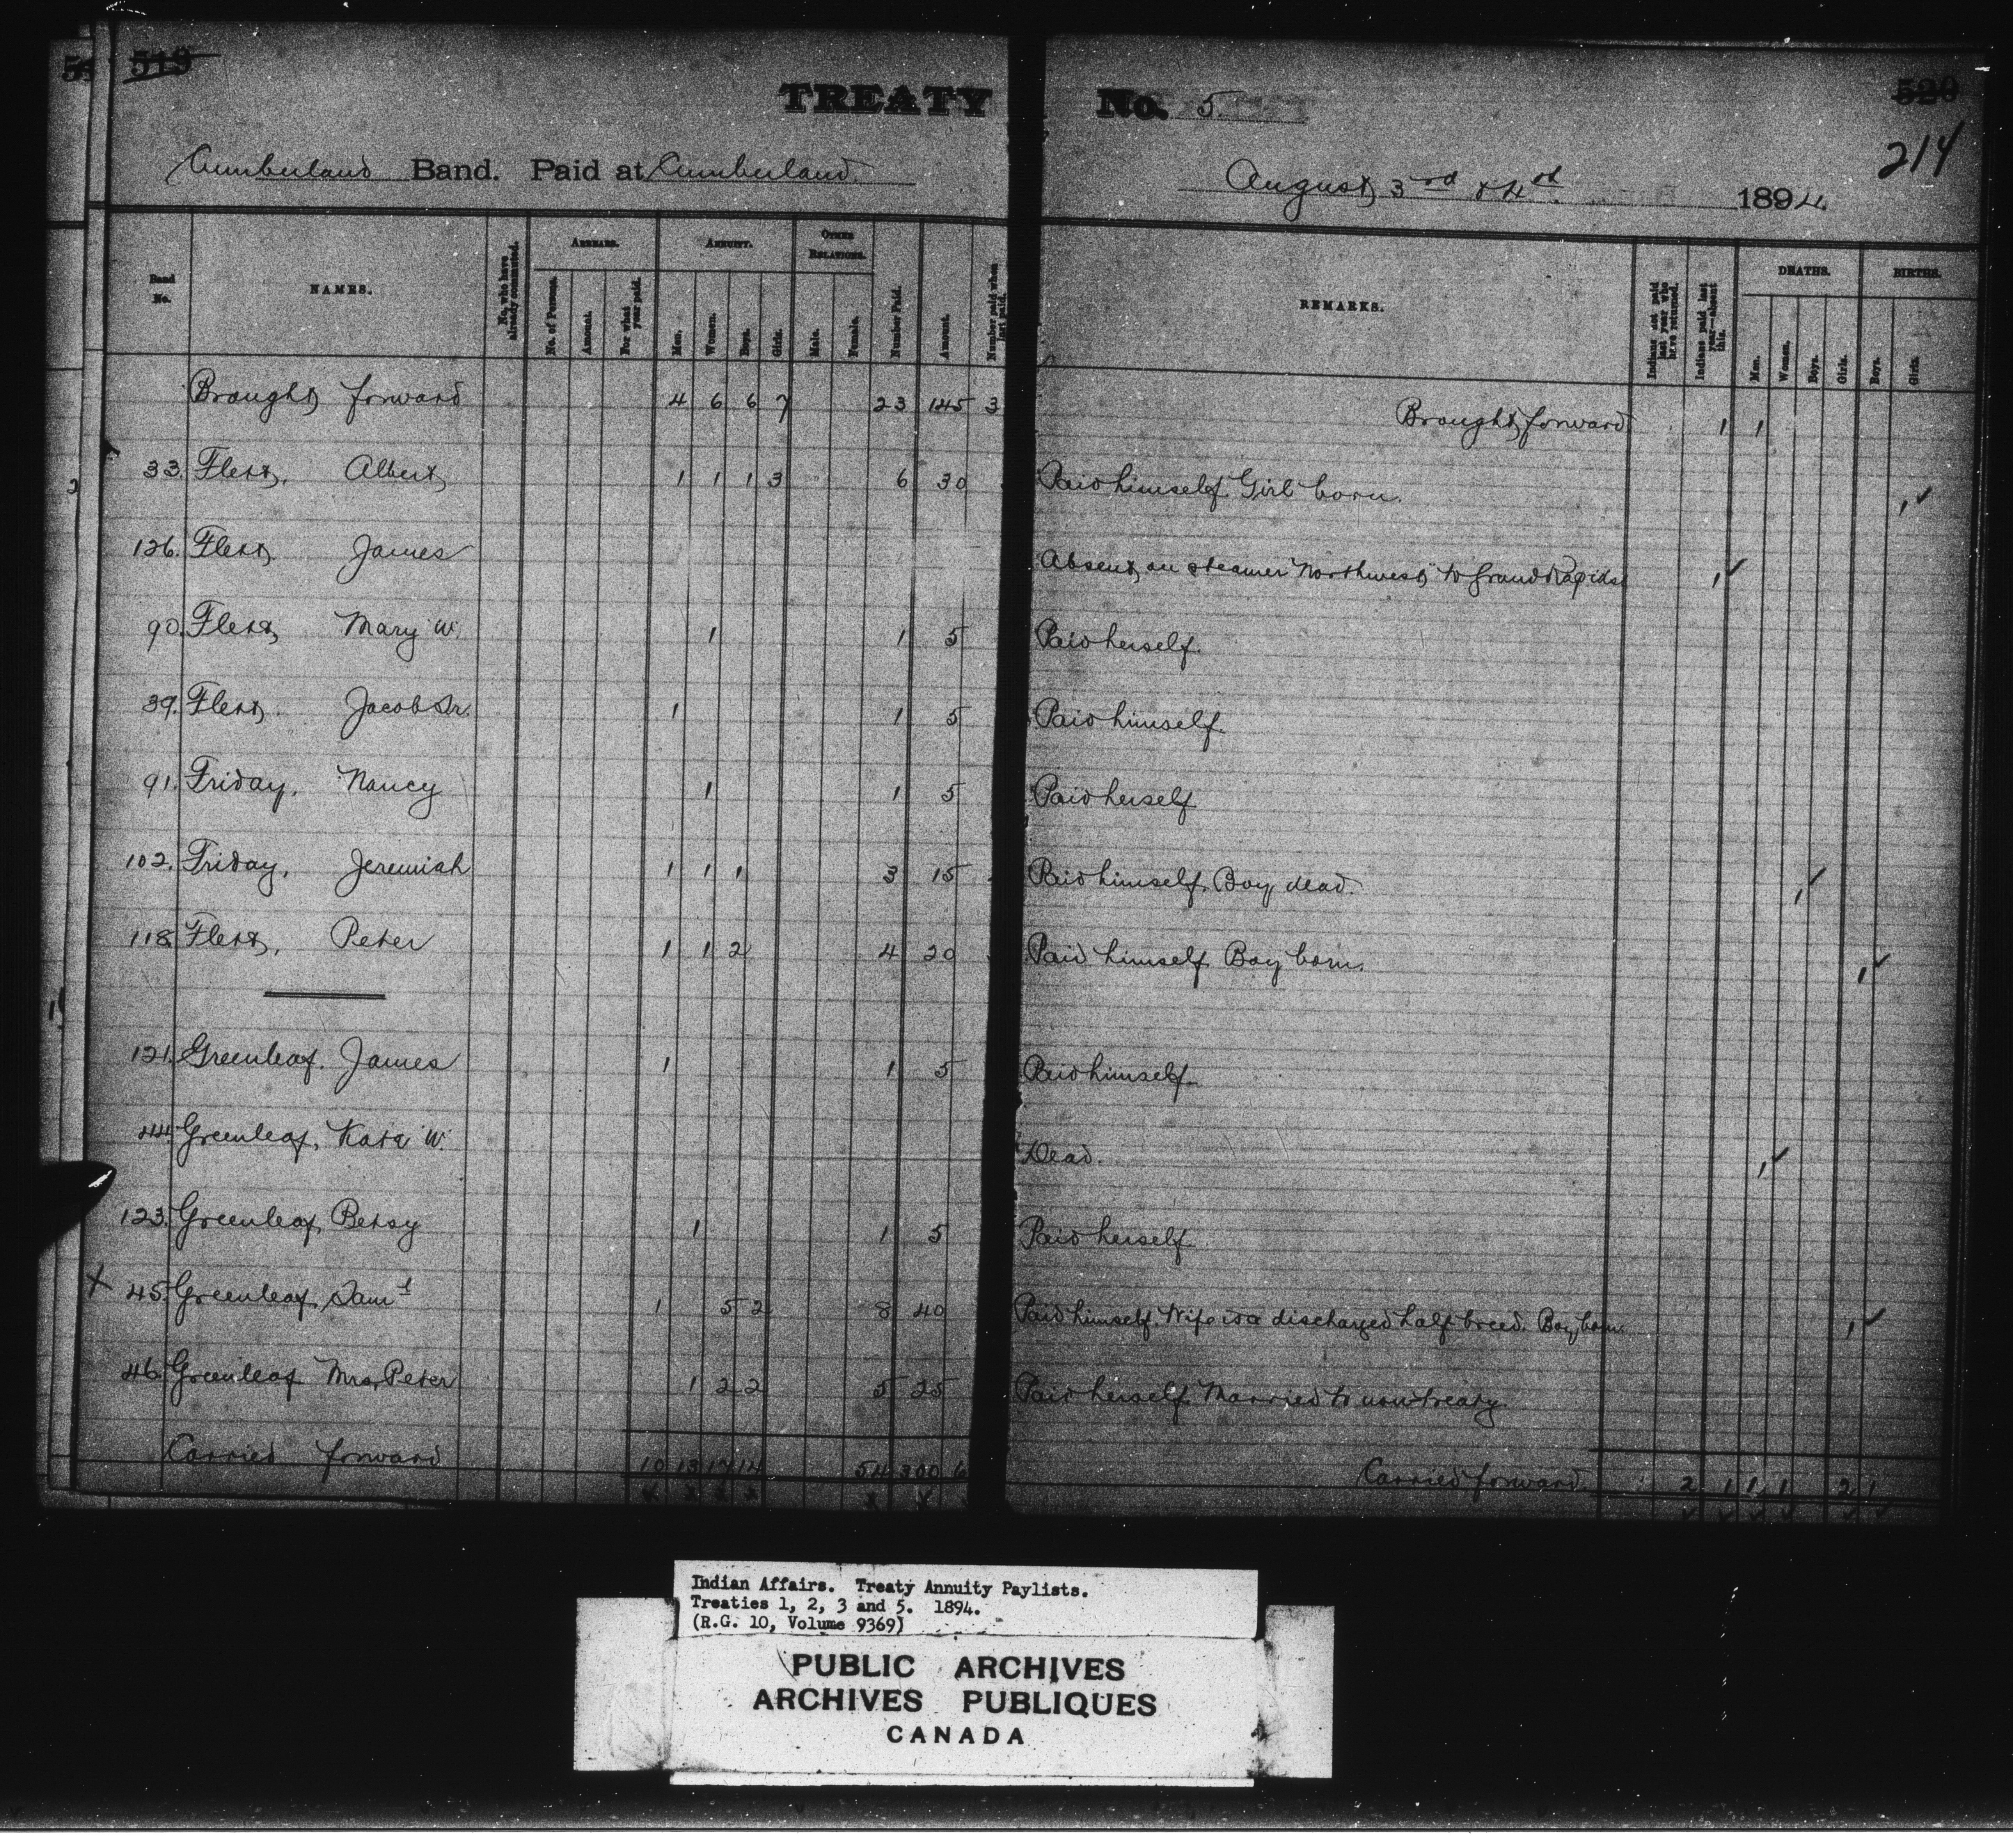 519
TREATY No. 5.
520
214
Cumberland Band. Paid at Cumberland.
August 3rd & 4th 1894.
Band No.
NAMES.
No. who have already commuted.
ARREARS.
No. of Persons.
Amount.
For what year paid.
ANNUITY.
Men.
Women.
Boys.
Girls.
OTHER RELATIONS.
Male.
Female.
Number Paid.
Amount.
Number paid when last paid.
REMARKS.
Indians not paid last year who have returned.
Indians paid last year—absent this.
DEATHS.
Men.
Women.
Boys.
Girls.
BIRTHS.
Boys.
Girls.
Brought forward 4 6 6 7 23 145 3 Brought forward 1 1
33. Flett, Albert 1 1 1 3 6 30 Paid himself. Girl born. 1 ✓
126. Flett, James Absent on steamer Northwest to Grand Rapids 1 ✓
90. Flett, Mary W. 1 1 5 Paid herself.
39. Flett, Jacob Sr. 1 1 5 Paid himself.
91. Friday, Nancy 1 1 5 Paid herself
102. Friday, Jeremiah 1 1 1 3 15 Paid himself. Boy dead. 1 ✓
118 Flett, Peter 1 1 2 4 20 Paid himself. Boy born. 1 ✓
121. Greenleaf, James 1 1 5 Paid himself
44. Greenleaf, Kate W. Dead. 1 ✓
123. Greenleaf, Betsy 1 1 5 Paid herself
X 45. Greenleaf, Saml 1 5 2 8 40 Paid himself. Wife is a discharged half breed. Boy born. 1 ✓
46. Greenleaf Mrs. Peter 1 2 2 5 25 Paid herself. Married to non treaty.
Carried forward 10 13 17 14 54 300 6 Carried forward 2 1 1 1 2 1
Indian Affairs. Treaty Annuity Paylists.
Treaties 1, 2, 3 and 5. 1894.
(R.G. 10, Volume 9369)
PUBLIC ARCHIVES
ARCHIVES PUBLIQUES
CANADA